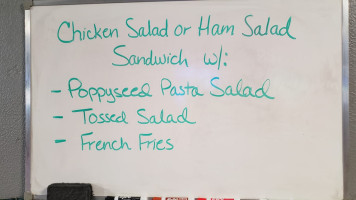 Chicken Salad or Ham Salad
Sandwich w/:
- Poppyseed Pasta Salad
- Tossed Salad
- French Fries